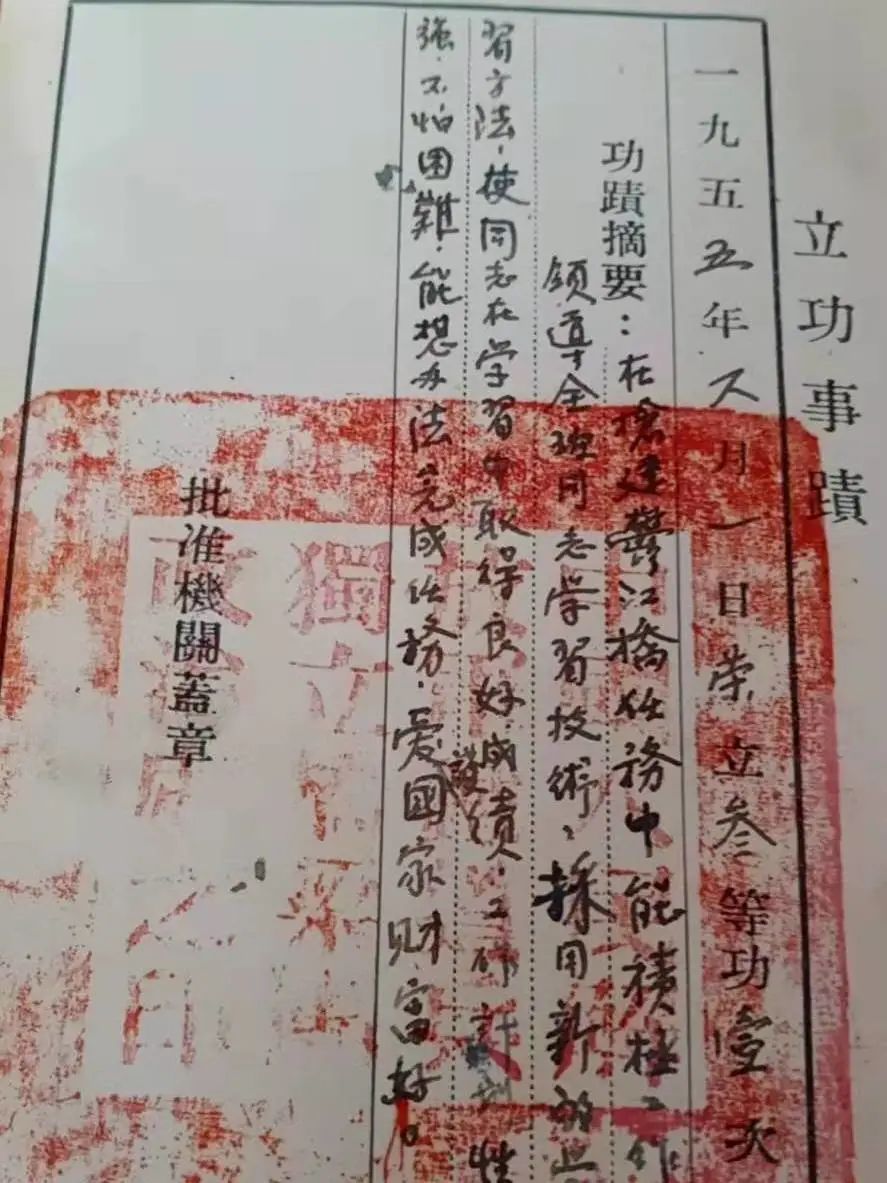 立功事蹟
一九五五年八月一日荣立叁等功壹次
功蹟摘要：在搶建鬱江橋任務中能積極工作
領導全班同志学習技術，採用新的
習方法，使同志在学習中取得良好成績．工作計划性
強．不怕困難．能想办法完成任務．愛護國家财富好。
批准機關蓋章
獨立
政
之印